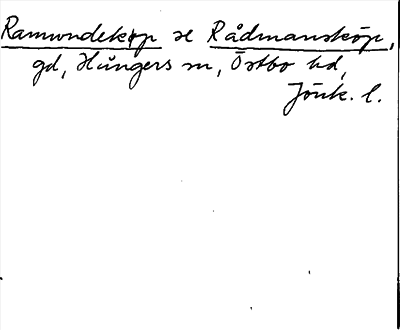 Ramundeköp se Rådmansköp,
gd, Hångers sn, Östbo hd,
Jönk. l.